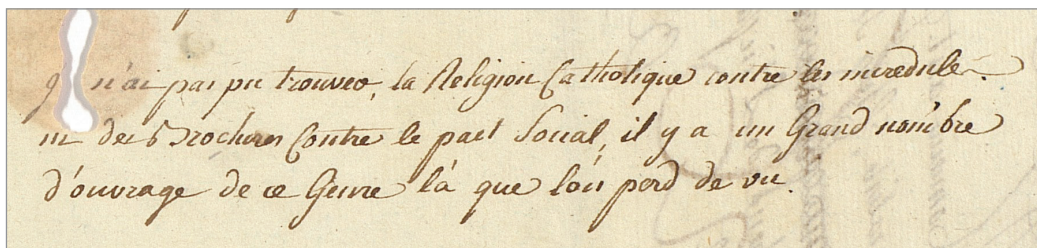 n'ai pas pu trouver, la Religion Catholique contre les incredules.
ni des Brochures Contre le pact Social, il y a un Grand nombre
d'ouvrage de ce Genre là que l'on perd de vu.